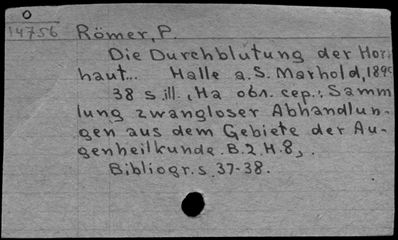 0
14756 Römer, P.
Die Durchblutung der Horn
haut... Halle a. S. Marhold, 1899
38 s. ill., Ha obл. сер.: Samm
lung zwangloser Abhandlun-
gen aus dem Gebiete der Au-
genheilkunde. B. 2. H. 8,.
Bibliogr. s. 37-38.